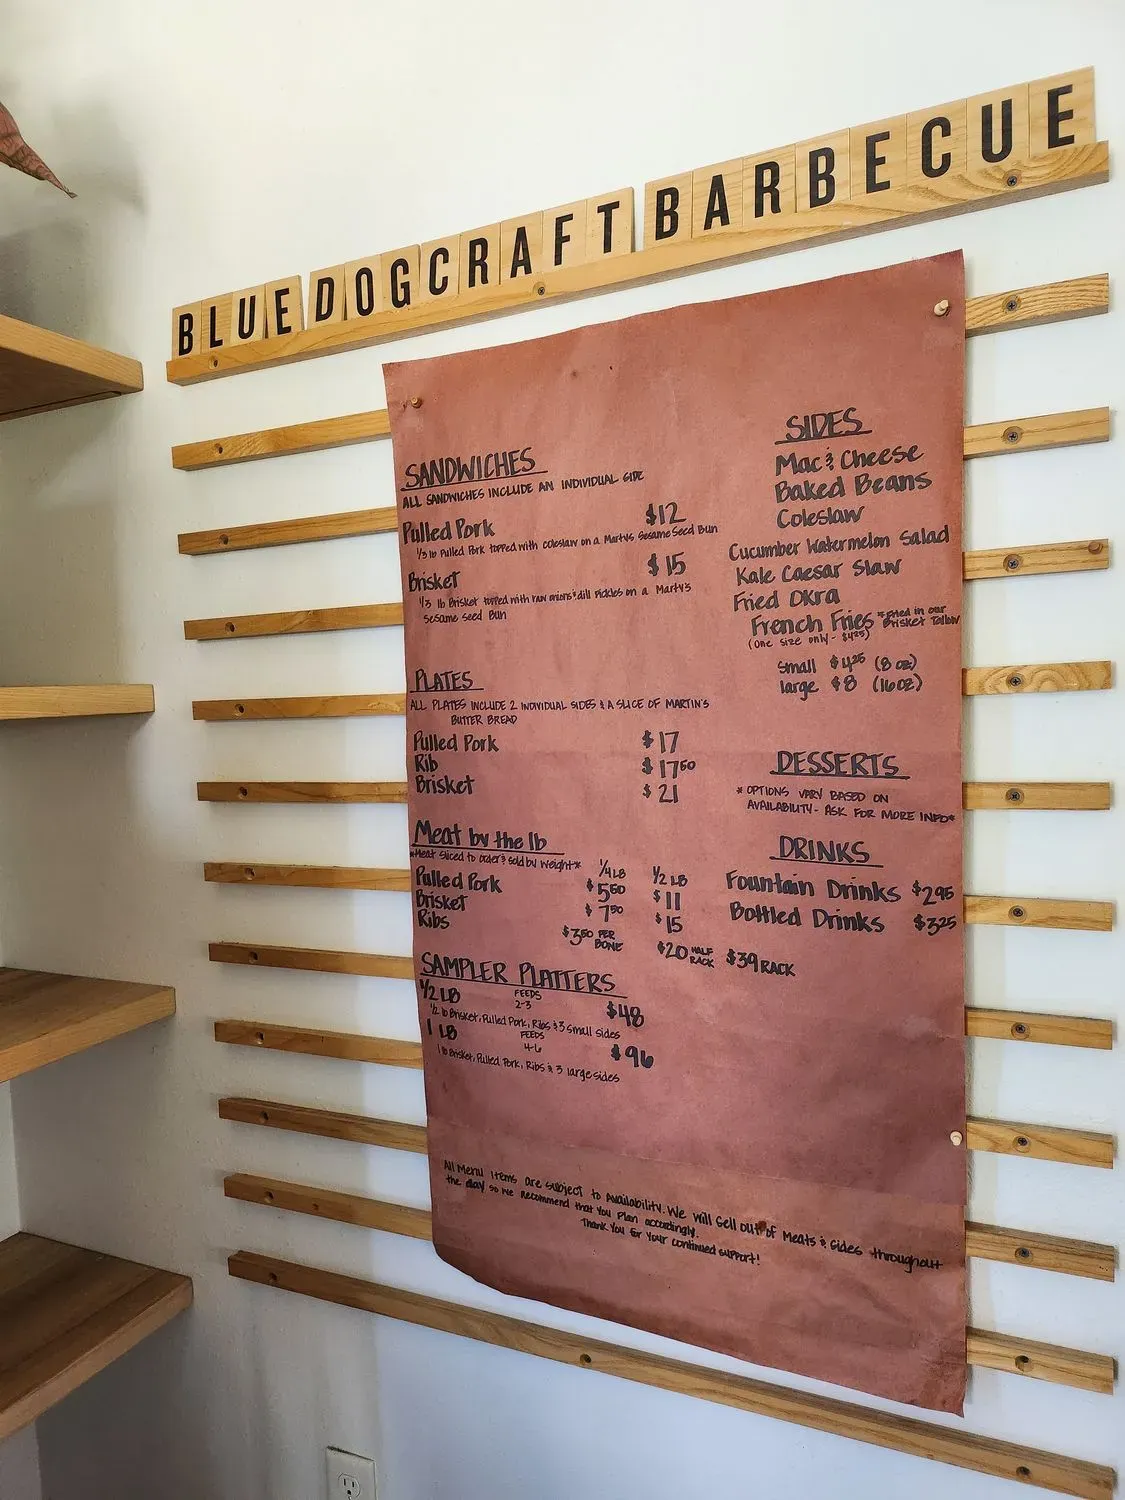 BLUE DOG CRAFT BARBECUE
SANDWICHES
ALL SANDWICHES INCLUDE AN INDIVIDUAL SIDE
Pulled Pork $12
1/3 lb Pulled Pork topped with coleslaw on a Martys Sesame Seed Bun
Brisket $15
1/3 lb Brisket topped with raw onions & dill pickles on a Marty's
Sesame Seed Bun
PLATES
ALL PLATES INCLUDE 2 INDIVIDUAL SIDES & A SLICE OF MARTIN'S
BUTTER BREAD
Pulled Pork $17
Rib $17.50
Brisket $21
Meat by the lb
*Meat sliced to order & sold by weight*
1/4 LB 1/2 LB
Pulled Pork $5.50 $11
Brisket $7.50 $15
Ribs $3.50 PER BONE $20 HALF RACK $39 RACK
SAMPLER PLATTERS
1/2 LB FEEDS 2-3 $48
1/2 lb Brisket, Pulled Pork, Ribs & 3 small sides
1 LB FEEDS 4-6 $96
1 lb Brisket, Pulled Pork, Ribs & 3 large sides
SIDES
Mac & Cheese
Baked Beans
Coleslaw
Cucumber Watermelon Salad
Kale Caesar Slaw
Fried Okra
French Fries *Fried in our Brisket Tallow
(One size only - $4.25)
Small $4.25 (8 oz)
large $8 (16 oz)
DESSERTS
* OPTIONS VARY BASED ON
AVAILABILITY - ASK FOR MORE INFO*
DRINKS
Fountain Drinks $2.95
Bottled Drinks $3.25
All Menu Items are subject to Availability. We will sell out of Meats & Sides throughout
the day so we recommend that you plan accordingly.
Thank You for Your continued support!